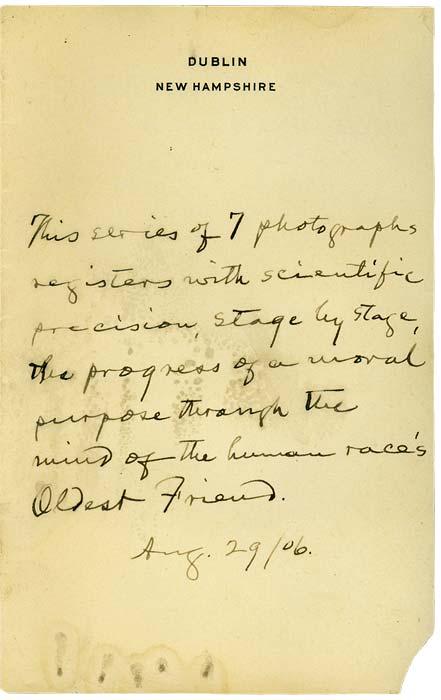 DUBLIN
NEW HAMPSHIRE
This series of 7 photographs
registers with scientific
precision, stage by stage,
the progress of a moral
purpose through the
mind of the human race's
Oldest Friend.
Aug. 29/06.